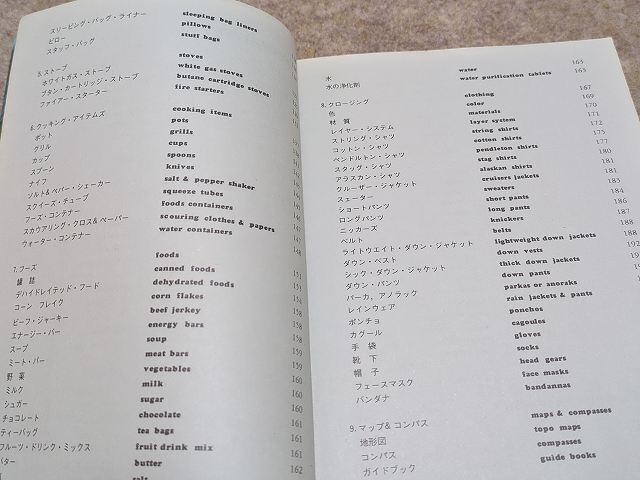 スリーピング・バッグ・ライナー sleeping bag liners
ピロー pillows
スタッフ・バッグ stuff bags
5.ストーブ stoves
ホワイトガス・ストーブ white gas stoves
ブタン・カートリッジ・ストーブ butane cartridge stoves
ファイアー・スターター fire starters
6.クッキング・アイテムズ cooking items
ポット pots
グリル grills
カップ cups
スプーン spoons
ナイフ knives
ソルト&ペパー・シェーカー salt & pepper shaker
スクイーズ・チューブ squeeze tubes
フーズ・コンテナー foods containers
スカウアリング・クロス& ペーパー scouring clothes & papers
ウォーター・コンテナー water containers
7.フーズ foods
罐 詰 canned foods
デハイドレイテッド・フード dehydrated foods 151
コーン フレイク corn flakes 154
ビーフ・ジャーキー beef jerkey 158
エナージー・バー energy bars 158
スープ soup 158
ミート・バー meat bars 159
野 菜 vegetables 159
ミルク milk 160
シュガー sugar 160
チョコレート chocolate 160
ティーバッグ tea bags 161
フルーツ・ドリンク・ミックス fruit drink mix 161
バター butter 162
salt
水 water 163
水の浄化剤 water purification tablets 163
8.クロージング clothing 167
色 color 169
材 質 materials 170
レイヤー・システム layer system 171
ストリング・シャツ string shirts 172
コットン・シャツ cotton shirts 175
ペンドルトン・シャツ pendleton shirts 177
スタッグ・シャツ stag shirts 180
アラスカン・シャツ alaskan shirts 181
クルーザー・ジャケット cruisers jackets 181
スェーター sweaters 183
ショートパンツ short pants 184
ロングパンツ long pants 186
ニッカーズ knickers 187
ベルト belts 188
ライトウエイト・ダウン・ジャケット lightweight down jackets 188
ダウン・ベスト down vests 192
シック・ダウン・ジャケット thick down jackets
ダウン・パンツ down pants
パーカ，アノラック parkas or anoraks
レインウェア rain jackets & pants
ポンチョ ponchos
カグール cagoules
手 袋 gloves
靴 下 socks
帽 子 head gears
フェースマスク face masks
バンダナ bandannas
9.マップ& コンパス maps & compasses
地形図 topo maps
コンパス compasses
ガイドブック guide books